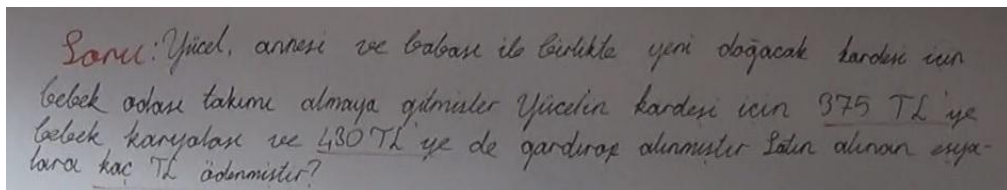 Soru: Yücel, annesi ve babası ile birlikte yeni doğacak kardeşi için
bebek odası takımı almaya gitmişler Yücelin kardeşi için 375 TL'ye
bebek karyolası ve 430 TL'ye de gardırop alınmıştır Satın alınan eşya-
lara kaç TL ödenmiştir?